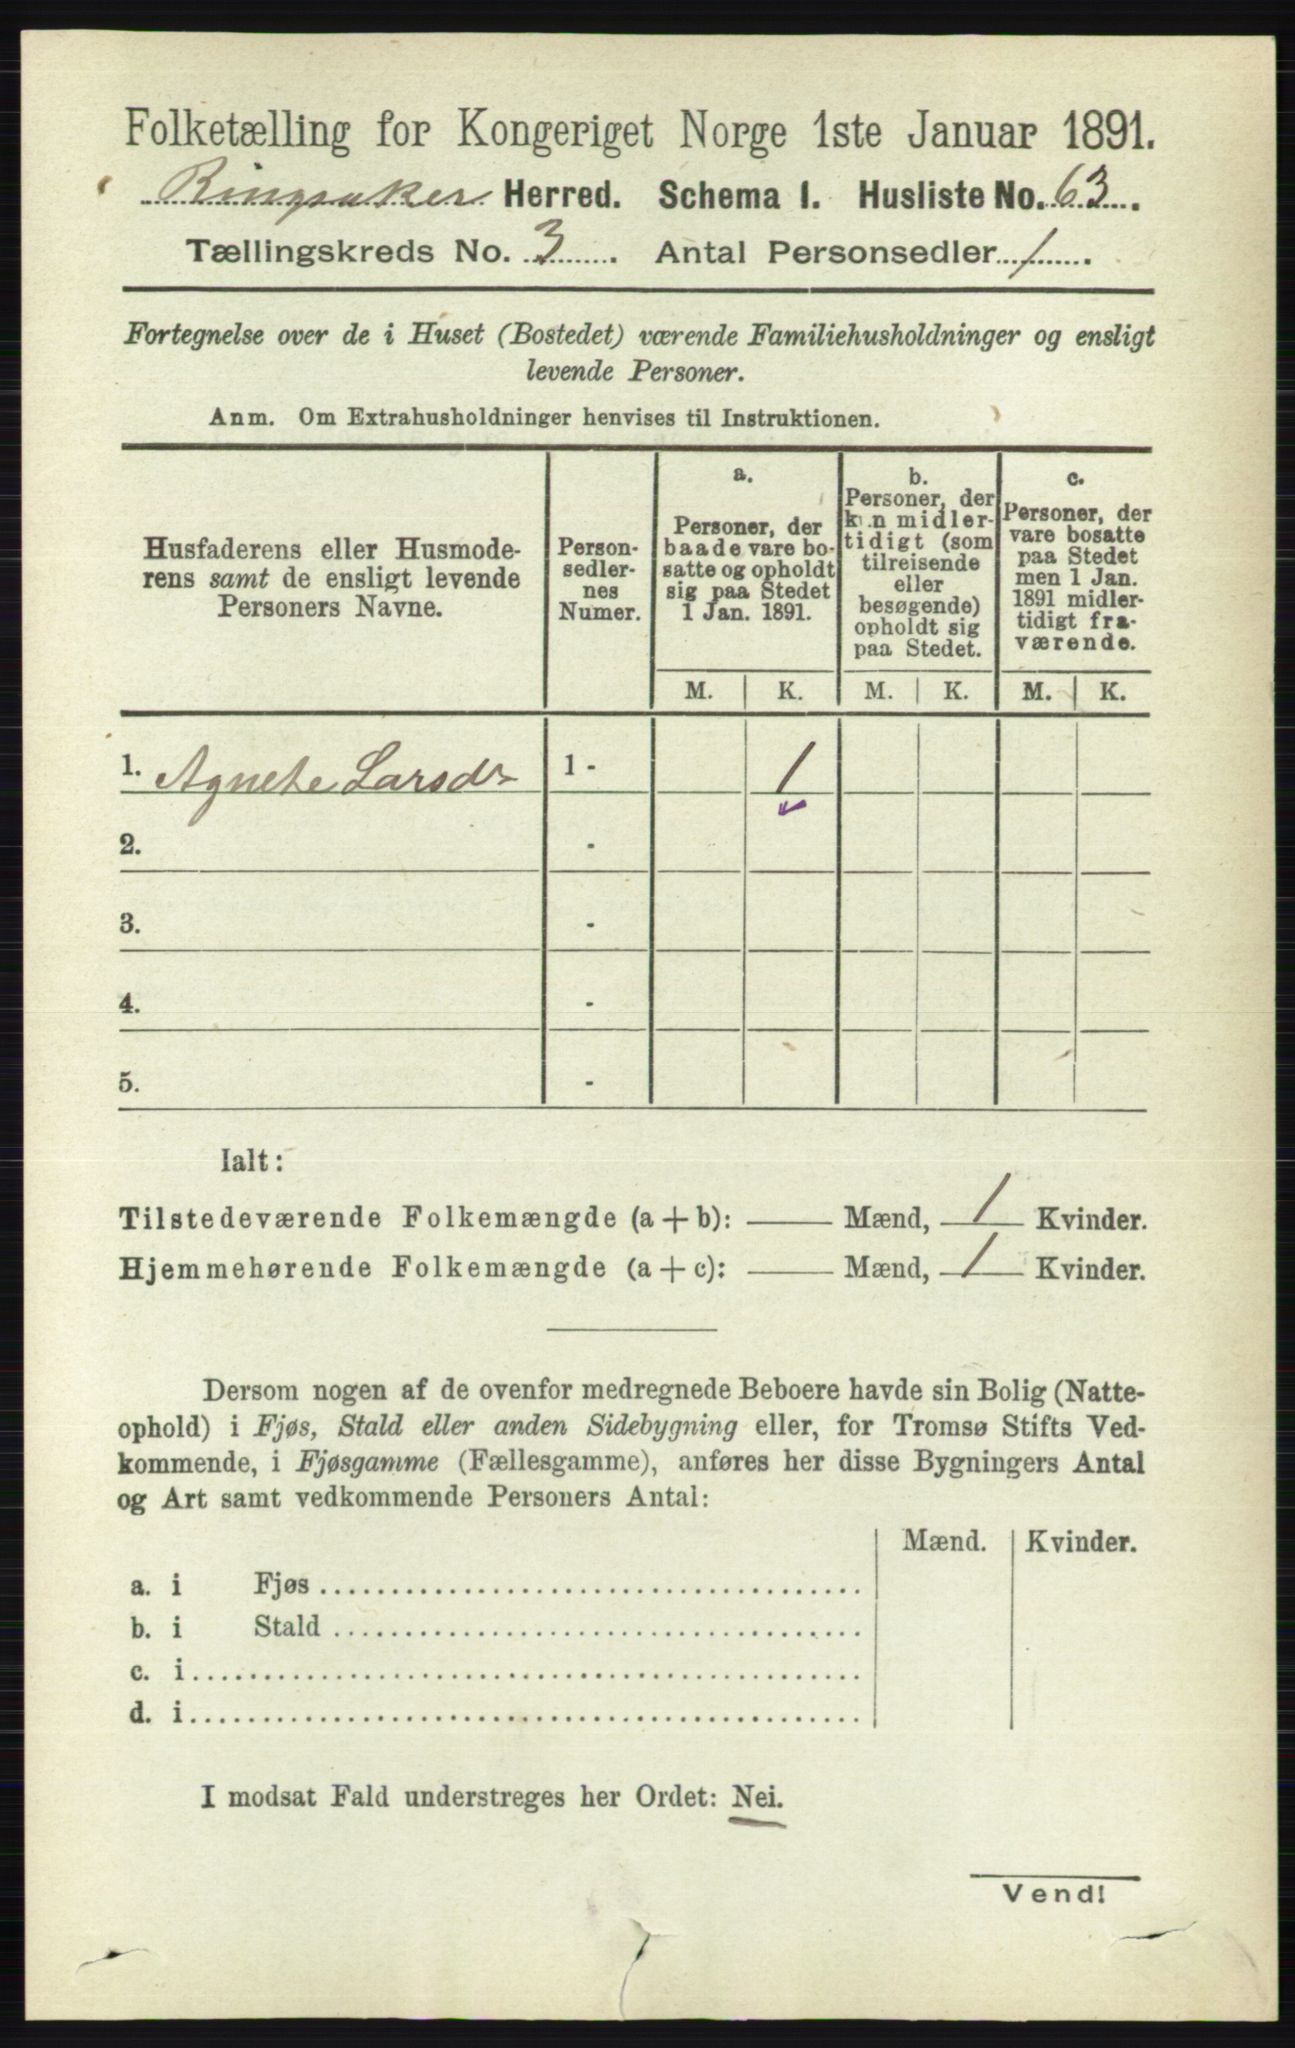 Folketælling for Kongeriget Norge 1ste Januar 1891.
Ringsaker Herred. Schema 1. Husliste No. 63.
Tællingskreds No. 3. Antal Personsedler 1.
Fortegnelse over de i Huset (Bostedet) værende Familiehusholdninger og ensligt
levende Personer.
Anm. Om Extrahusholdninger henvises til Instruktionen.
Husfaderens eller Husmode-
rens samt de ensligt levende
Personers Navne.
Person-
sedler-
nes
Numer.
a.
Personer, der
baade vare bo-
satte og opholdt
sig paa Stedet
1 Jan. 1891.
b.
Personer, der
kun midler-
tidigt (som
tilreisende
eller
besøgende)
opholdt sig
paa Stedet.
c.
Personer, der
vare bosatte
paa Stedet
men 1 Jan.
1891 midler-
tidigt fra-
værende.
M. K. M. K. M. K.
1. Agnete Larsdr 1 - 1
2. -
3. -
4. -
5. -
Ialt:
Tilstedeværende Folkemængde (a + b): — Mænd, 1 Kvinder.
Hjemmehørende Folkemængde (a + c): — Mænd, 1 Kvinder.
Dersom nogen af de ovenfor medregnede Beboere havde sin Bolig (Natte-
ophold) i Fjøs, Stald eller anden Sidebygning eller, for Tromsø Stifts Ved-
kommende, i Fjøsgamme (Fællesgamme), anføres her disse Bygningers Antal
og Art samt vedkommende Personers Antal:
Mænd. Kvinder.
a. i Fjøs
b. i Stald
c. i
d. i
I modsat Fald understreges her Ordet: Nei.
Vend!